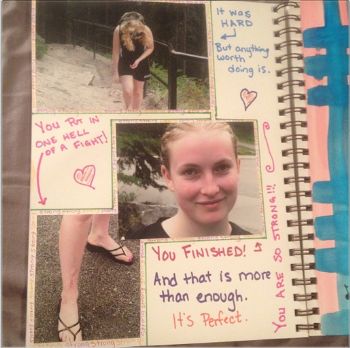 It was
HARD
But anything
worth
doing is.
You put in
one hell
of a fight!
You finished!
And that is more
than enough.
It's Perfect.
You are so strong!!!